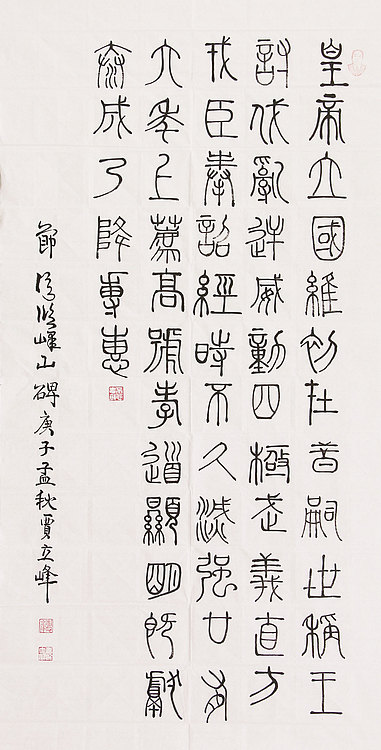 皇帝立國維初在昔嗣世稱王
討伐亂逆威動四極武義直方
戎臣奉詔經時不久滅強廿有
六年上薦高號孝道顯明既獻
泰成乃降專惠
節臨嶧山碑庚子孟秋賈立峰